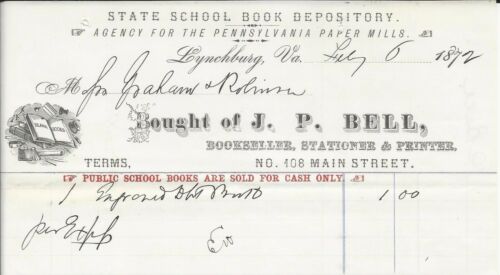 STATE SCHOOL BOOK DEPOSITORY.
AGENCY FOR THE PENNSYLVANIA PAPER MILLS.
Lynchburg, Va. July 6 1872
M Graham & Robinson
Bought of J. P. BELL,
BLANK BOOKS
BOOKSELLER, STATIONER & PRINTER,
TERMS, NO. 108 MAIN STREET.
PUBLIC SCHOOL BOOKS ARE SOLD FOR CASH ONLY.
1 Engrossed 1 00
per